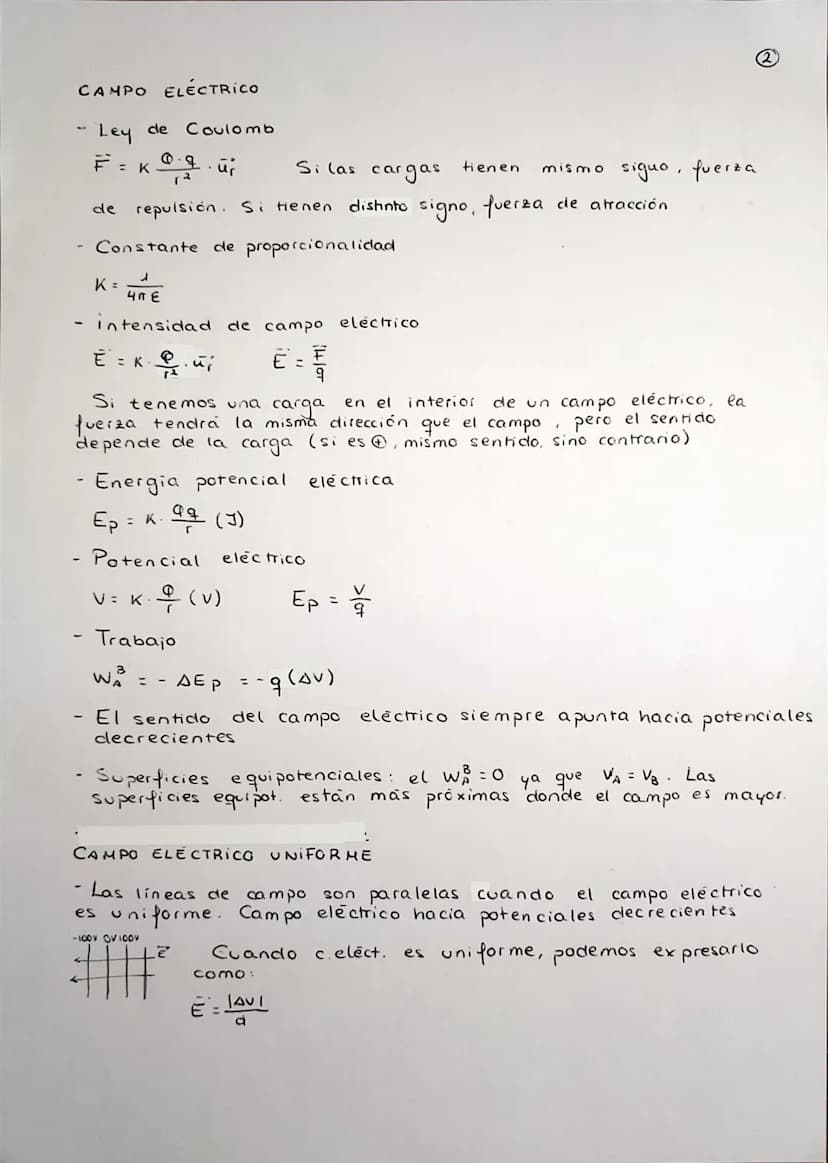 ②
CAMPO ELÉCTRICO
- Ley de Coulomb
F⃗ = K (Q·q / r²) · u⃗r Si las cargas tienen mismo siguo, fuerza
de repulsión. Si tienen distinto signo, fuerza de atracción
- Constante de proporcionalidad
K = 1 / 4πε
- intensidad de campo eléctrico
E⃗ = K · (Q / r²) · u⃗r E⃗ = F⃗ / q
Si tenemos una carga en el interior de un campo eléctrico, la
fuerza tendrá la misma dirección que el campo, pero el sentido
depende de la carga (si es ⊕, mismo sentido, sino contrario)
- Energía potencial eléctrica
Ep = K · Qq / r (J)
- Potencial eléctrico
V = K · Q / r (V) Ep = V / q
- Trabajo
W_A^B = - ΔEp = - q (ΔV)
- El sentido del campo eléctrico siempre apunta hacia potenciales
decrecientes
- Superficies equipotenciales: el W_A^B = 0 ya que V_A = V_B. Las
superficies equipot. están más próximas donde el campo es mayor.
CAMPO ELÉCTRICO UNIFORME
- Las líneas de campo son paralelas cuando el campo eléctrico
es uniforme. Campo eléctrico hacia potenciales decrecientes
-100V 0V 100V
E⃗ Cuando c.eléct. es uniforme, podemos expresarlo
como:
E⃗ = |ΔV| / d